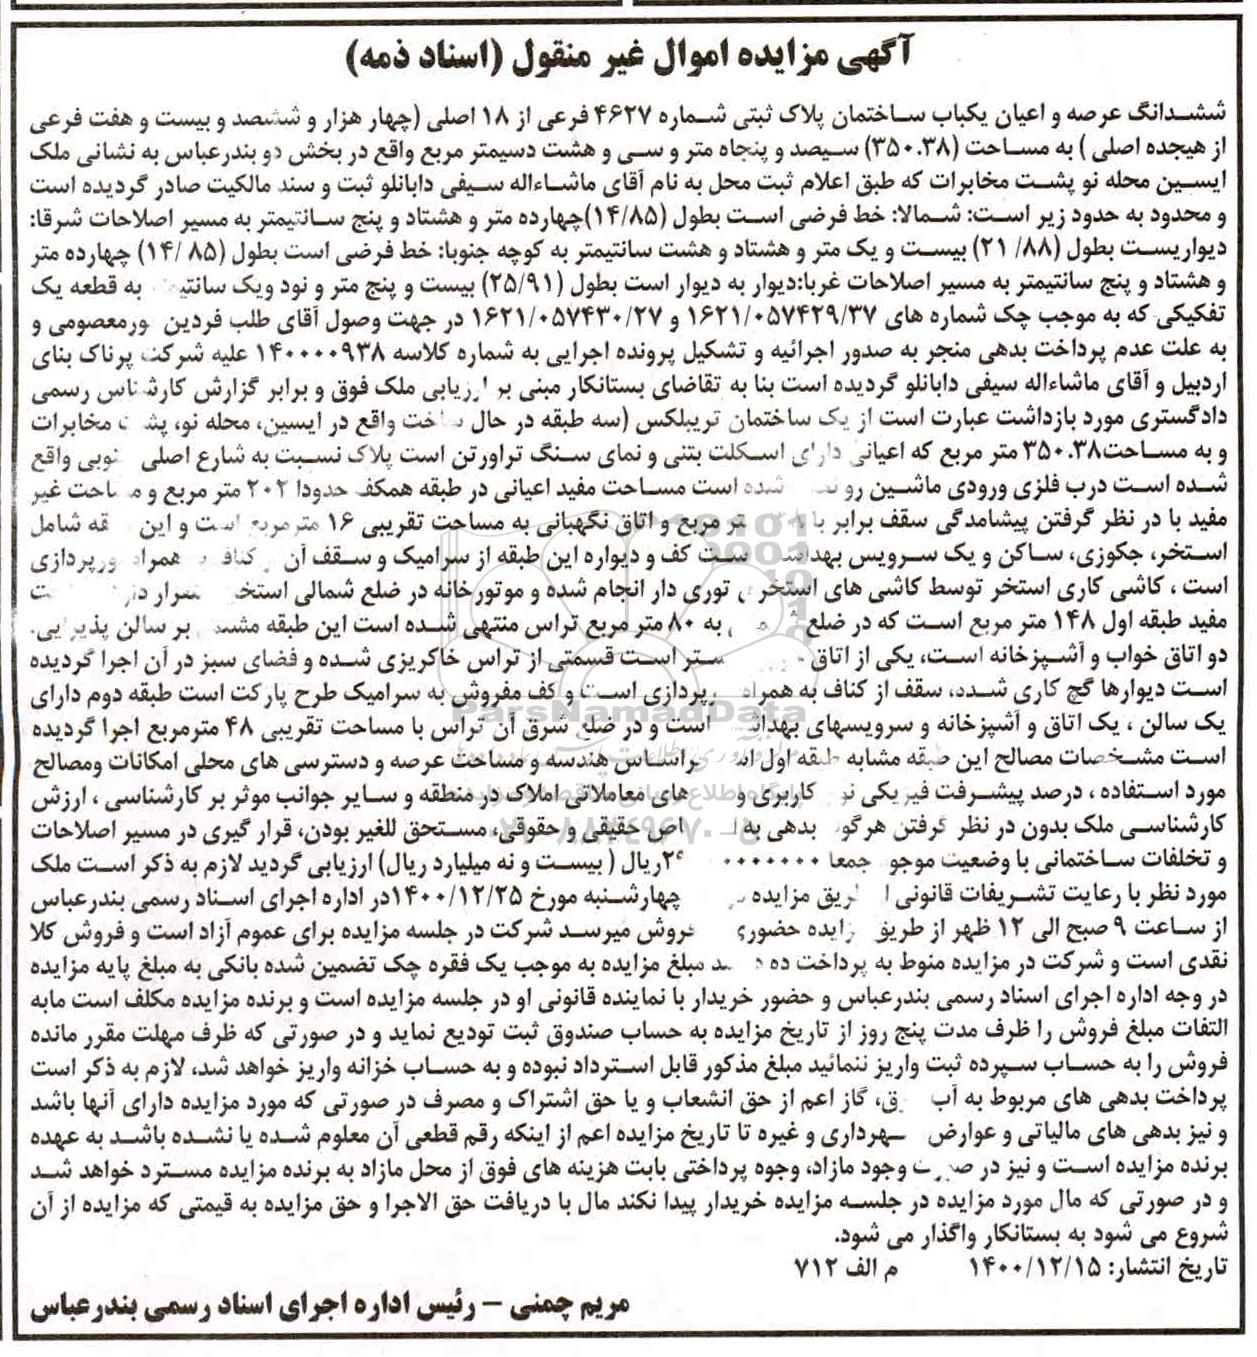 آگهی مزایده اموال غیر منقول (اسناد ذمه)
ششدانگ عرصه و اعیان یکباب ساختمان پلاک ثبتی شماره ۴۶۲۷ فرعی از ۱۸ اصلی (چهار هزار و ششصد و بیست و هفت فرعی
از هیجده اصلی ) به مساحت (۳۵۰.۳۸) سیصد و پنجاه متر و سی و هشت دسیمتر مربع واقع در بخش دو بندرعباس به نشانی ملک
ایسین محله نو پشت مخابرات که طبق اعلام ثبت محل به نام آقای ماشاءاله سیفی دابانلو ثبت و سند مالکیت صادر گردیده است
و محدود به حدود زیر است: شمالا: خط فرضی است بطول (۱۴/۸۵)چهارده متر و هشتاد و پنج سانتیمتر به مسیر اصلاحات شرقا:
دیواریست بطول (۸۸/ ۲۱) بیست و یک متر و هشتاد و هشت سانتیمتر به کوچه جنوبا: خط فرضی است بطول (۸۵ /۱۴) چهارده متر
و هشتاد و پنج سانتیمتر به مسیر اصلاحات غربا:دیوار به دیوار است بطول (۲۵/۹۱) بیست و پنج متر و نود ویک به قطعه یک
تفکیکی که به موجب چک شماره های ۱۶۲۱/۰۵۷۴۲۹/۳۷ و ۱۶۲۱/۰۵۷۴۳۰/۲۷ در جهت وصول آقای طلب فردین و
به علت عدم پرداخت بدهی منجر به صدور اجرائیه و تشکیل پرونده اجرایی به شماره کلاسه ۱۴۰۰۰۰۹۳۸ علیه شرکت پرناک بنای
اردبیل و آقای ماشاءاله سیفی دابانلو گردیده است بنا به تقاضای بستانکار مبنی بر ارزیابی ملک فوق و برابر گزارش کارشناس رسمی
دادگستری مورد بازداشت عبارت است از یک ساختمان تریبلکس (سه طبقه در حال ساخت واقع در ایسین، محله نو، پشت مخابرات
و به مساحت۳۵۰.۳۸ متر مربع که اعیانی دارای اسکلت بتنی و نمای سنگ تراورتن است پلاک نسبت به شارع اصلی واقع
شده است درب فلزی ورودی ماشین رو شده است مساحت مفید اعیانی در طبقه همکف حدودا ۲۰۲ متر مربع و مساحت غیر
مفید با در نظر گرفتن پیشامدگی سقف برابر با متر مربع و اتاق نگهبانی به مساحت تقریبی ۱۶ مترمربع است و این شامل
استخر، جکوزی، ساکن و یک سرویس است کف و دیواره این طبقه از سرامیک و سقف آن
است ، کاشی کاری استخر توسط کاشی های استخری توری دار انجام شده و موتورخانه در ضلع شمالی استخر
مفید طبقه اول ۱۴۸ متر مربع است که در ضلع به ۸۰ متر مربع تراس منتهی شده است این طبقه بر سالن پذیرایی.
دو اتاق خواب و آشپزخانه است، یکی از اتاق است قسمتی از تراس خاکریزی شده و فضای سبز در آن اجرا گردیده
است دیوارها گچ کاری شده، سقف از کناف به همراه است و کف مفروش به سرامیک طرح پارکت است طبقه دوم دارای
یک سالن ، یک اتاق و آشپزخانه و سرویسهای است و در ضلع شرق آن تراس با مساحت تقریبی ۴۸ مترمربع اجرا گردیده
است مشخصات مصالح این طبقه مشابه طبقه اول براساس هندسه و مساحت عرصه و دسترسی های محلی امکانات ومصالح
مورد استفاده ، درصد پیشرفت فیزیکی کاربری و های معاملاتی املاک در منطقه و سایر جوانب موثر بر کارشناسی ، ارزش
کارشناسی ملک بدون در نظر گرفتن هرگونه بدهی به حقیقی و حقوقی، مستحق للغیر بودن، قرار گیری در مسیر اصلاحات
و تخلفات ساختمانی با وضعیت موجود جمعا ریال ( بیست و نه میلیارد ریال) ارزیابی گردید لازم به ذکر است ملک
مورد نظر با رعایت تشریفات قانونی طریق مزایده چهارشنبه مورخ ۱۴۰۰/۱۲/۲۵در اداره اجرای اسناد رسمی بندرعباس
از ساعت ۹ صبح الی ۱۲ ظهر از طریق مزایده حضوری فروش میرسد شرکت در جلسه مزایده برای عموم آزاد است و فروش کلا
نقدی است و شرکت در مزایده منوط به پرداخت ده درصد مبلغ مزایده به موجب یک فقره چک تضمین شده بانکی به مبلغ پایه مزایده
در وجه اداره اجرای اسناد رسمی بندرعباس و حضور خریدار با نماینده قانونی او در جلسه مزایده است و برنده مزایده مکلف است مابه
التفات مبلغ فروش را ظرف مدت پنج روز از تاریخ مزایده به حساب صندوق ثبت تودیع نماید و در صورتی که ظرف مهلت مقرر مانده
فروش را به حساب سپرده ثبت واریز ننمائید مبلغ مذکور قابل استرداد نبوده و به حساب خزانه واریز خواهد شد، لازم به ذکر است
پرداخت بدهی های مربوط به آب برق، گاز اعم از حق انشعاب و یا حق اشتراک و مصرف در صورتی که مورد مزایده دارای آنها باشد
و نیز بدهی های مالیاتی و عوارض شهرداری و غیره تا تاریخ مزایده اعم از اینکه رقم قطعی آن معلوم شده یا نشده باشد به عهده
برنده مزایده است و نیز در صورت وجود مازاد، وجوه پرداختی بابت هزینه های فوق از محل مازاد به برنده مزایده مسترد خواهد شد
و در صورتی که مال مورد مزایده در جلسه مزایده خریدار پیدا نکند مال با دریافت حق الاجرا و حق مزایده به قیمتی که مزایده از آن
شروع می شود به بستانکار واگذار می شود.
تاریخ انتشار: ۱۴۰۰/۱۲/۱۵ م الف ۷۱۲
مریم چمنی – رئیس اداره اجرای اسناد رسمی بندرعباس
ParsNamadData